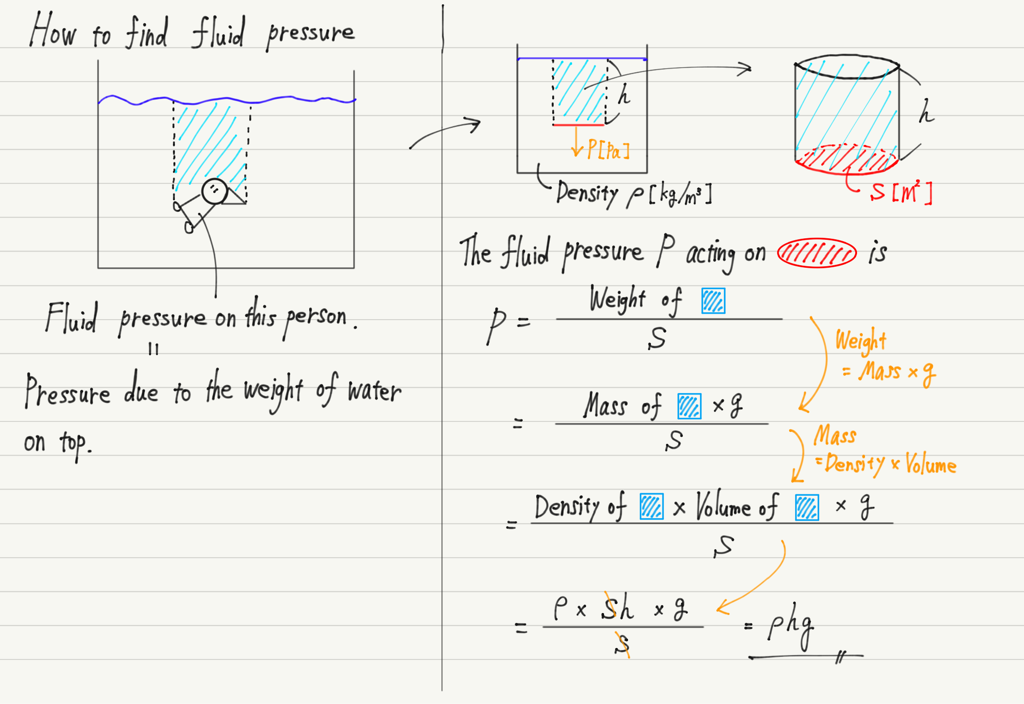 How to find fluid pressure
Fluid pressure on this person.
=
Pressure due to the weight of water
on top.
h
P[Pa]
Density ρ[kg/m³]
h
S[m²]
The fluid pressure P acting on is
P = Weight of / S
Weight
= Mass × g
= Mass of × g / S
Mass
=Density × Volume
= Density of × Volume of × g / S
= ρ × Sh × g / S = ρhg